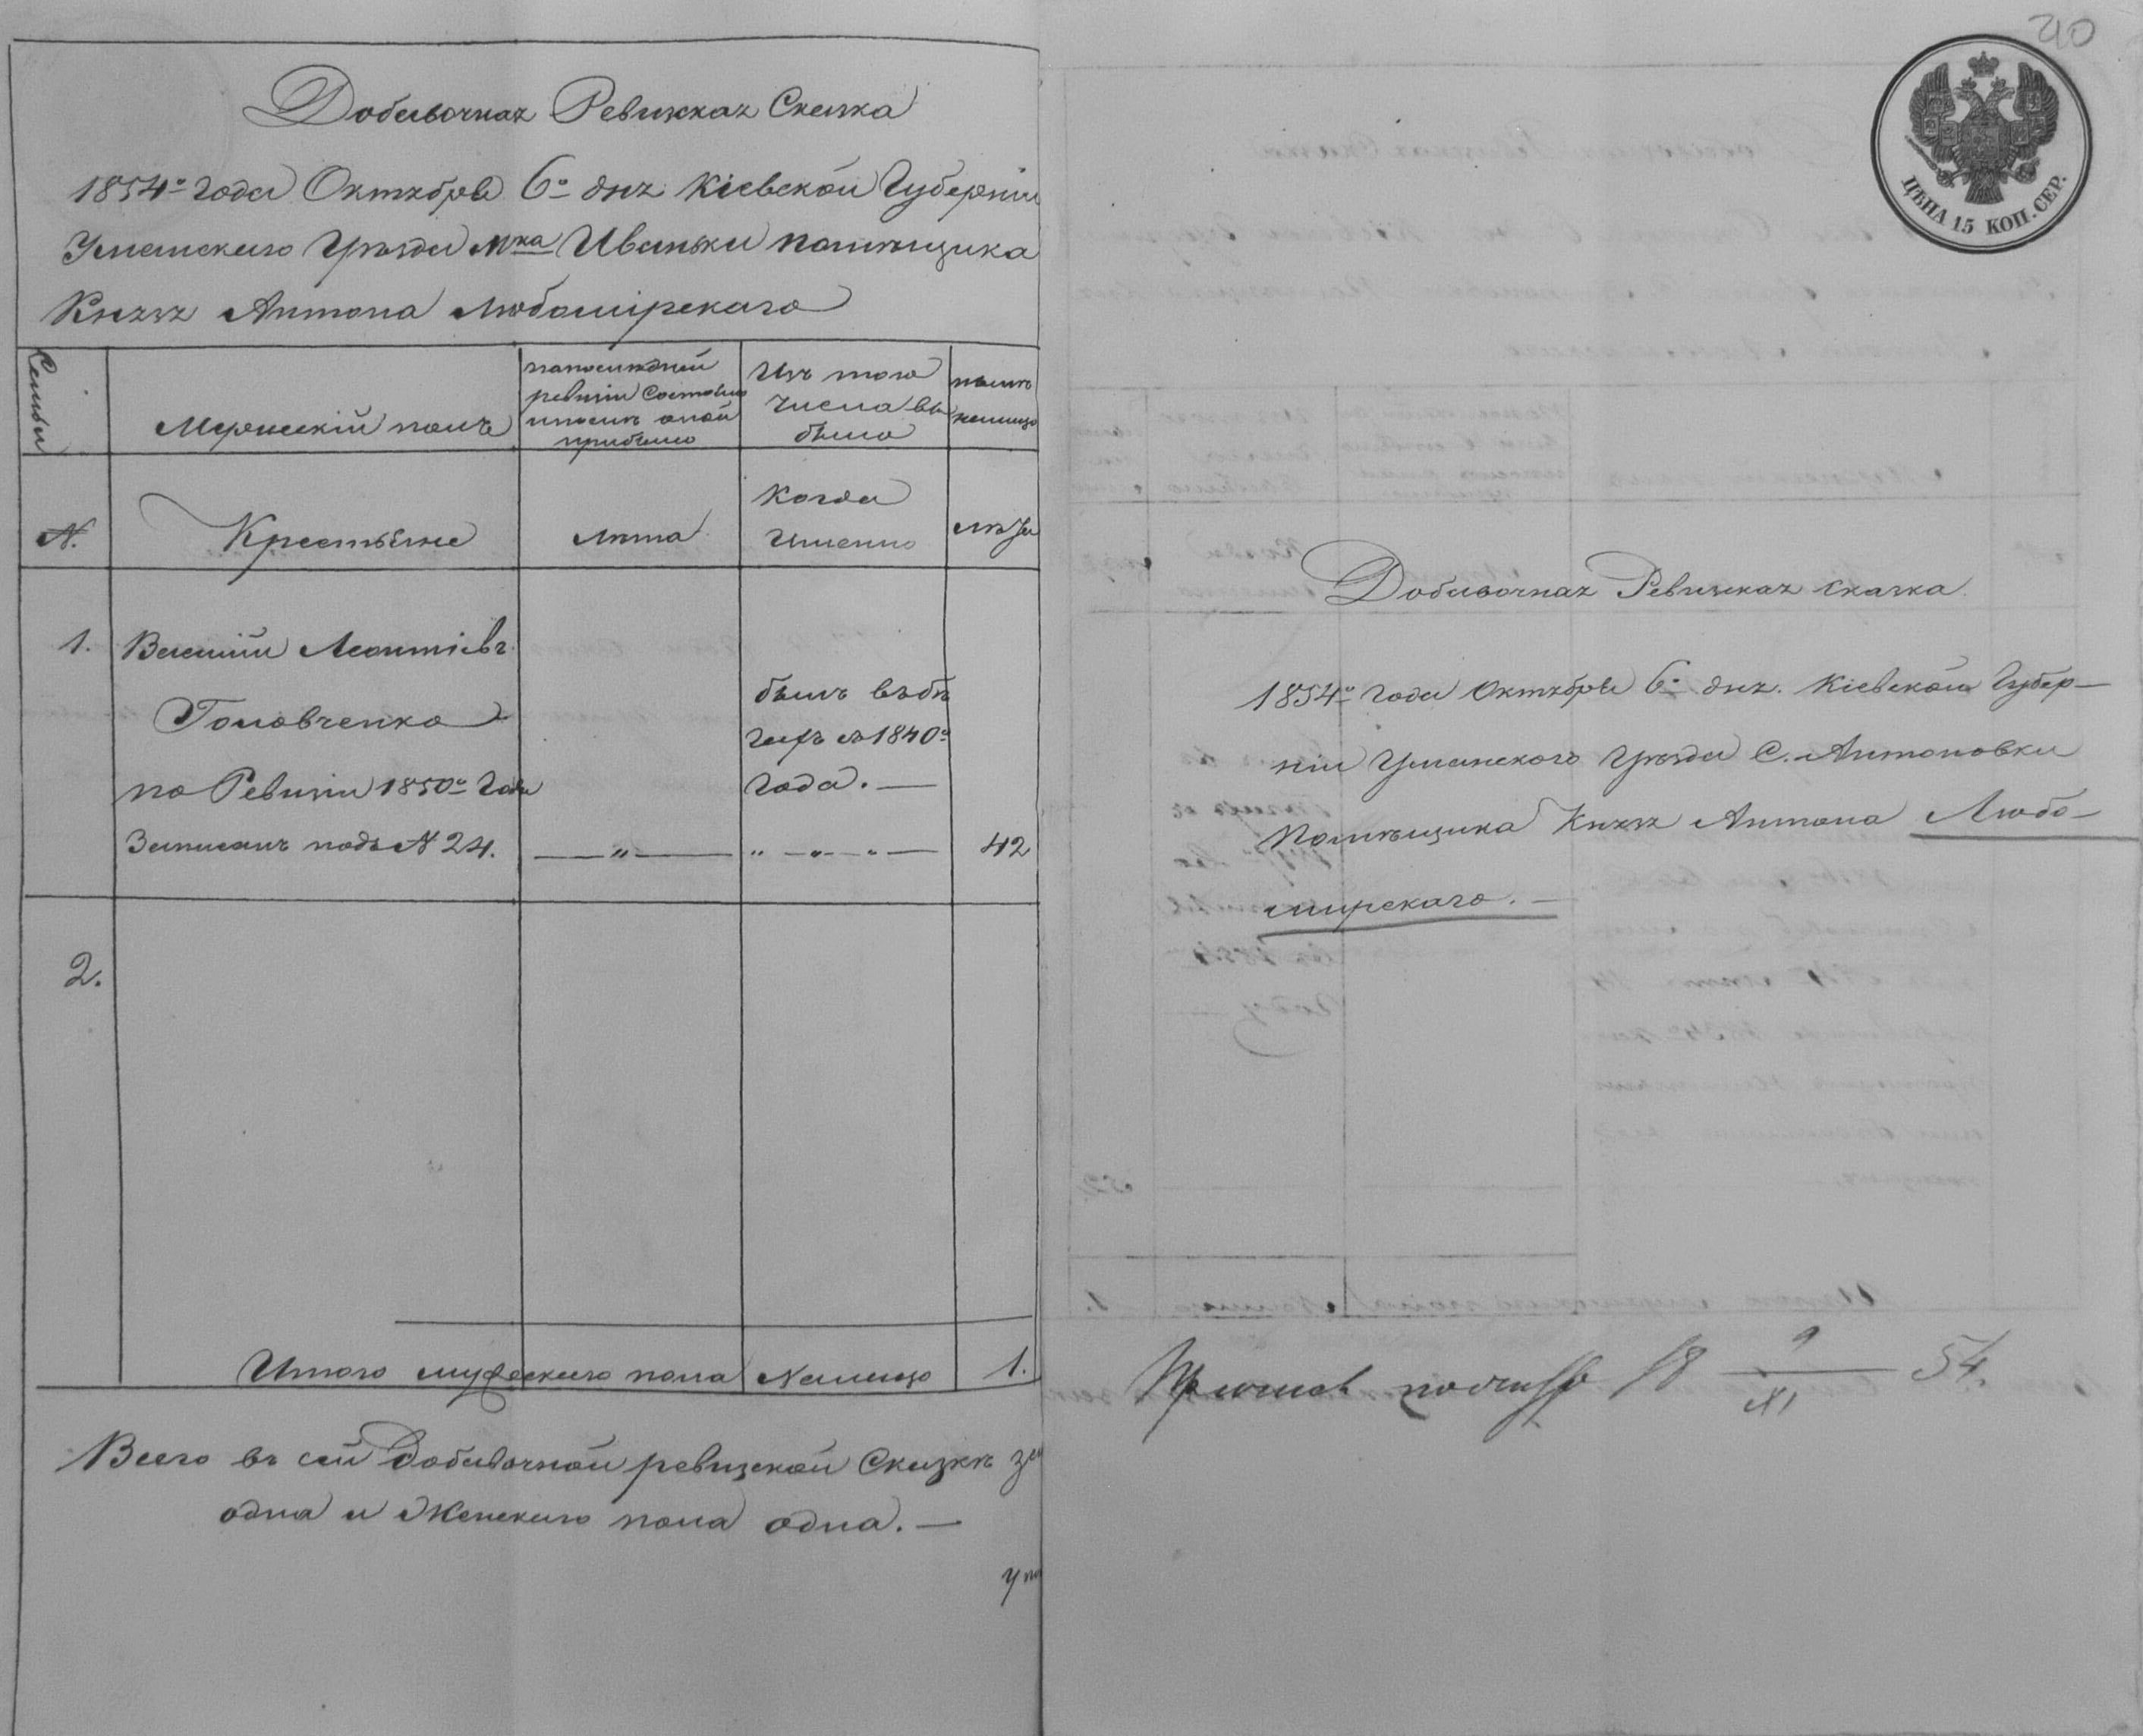 Добавочная Ревижская Скаска
1854го года Октября 6го дня Кіевской Губерніи
Уманскаго Уѣзда Мка Иваньки помѣщика
Князя Антона Любомірскаго
Семьи
Мужескій полъ
попослѣдней
ревизіи Состояло
ипослѣ оной
прибыло
Изъ того
числа вы
было
нынѣ
налицо
№.
Крестьяне
Лѣта
Когда
Именно
лѣта
1. Василій Леонтіевъ
Головченко
по Ревизіи 1850го Года
Записанъ подъ № 24.
былъ въбѣ
гахъ съ 1840го
года. —
— „ — „ — „ — 42
2.
Итого мужескаго пола Налицо 1.
Всего въ сей Добавочной ревизской Сказкѣ
одна и Женскаго пола одна. —
40
ЦѢНА 15 КОП. СЕР.
Добавочная Ревизская скаска
1854го года Октября 6го дня. Кіевской Губер-
ніи Уманского Уѣзда С. Антоновки
Помѣщика Князя Антона Любо-
мирскаго. —
18 9/XI 54.